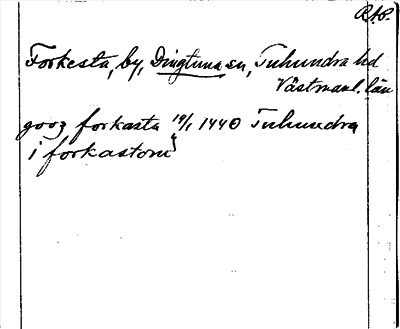 RAP.
Forkesta, by, Dingtuna sn, Tuhundra hd
Västmanl. län
gooz forkasta 19/1 1440 Tuhundra
i forkastom